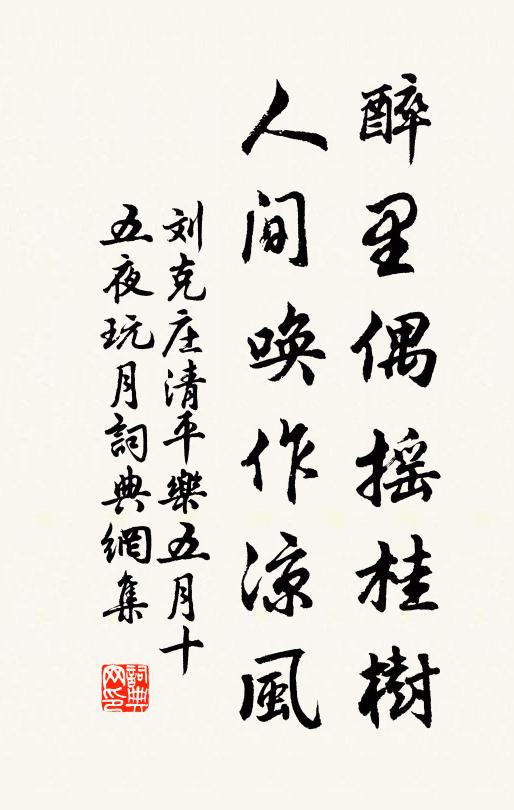 醉里偶摇桂樹
人间唤作凉風
刘克庄清平樂五月十
五夜玩月詞典網集
詞典
网印